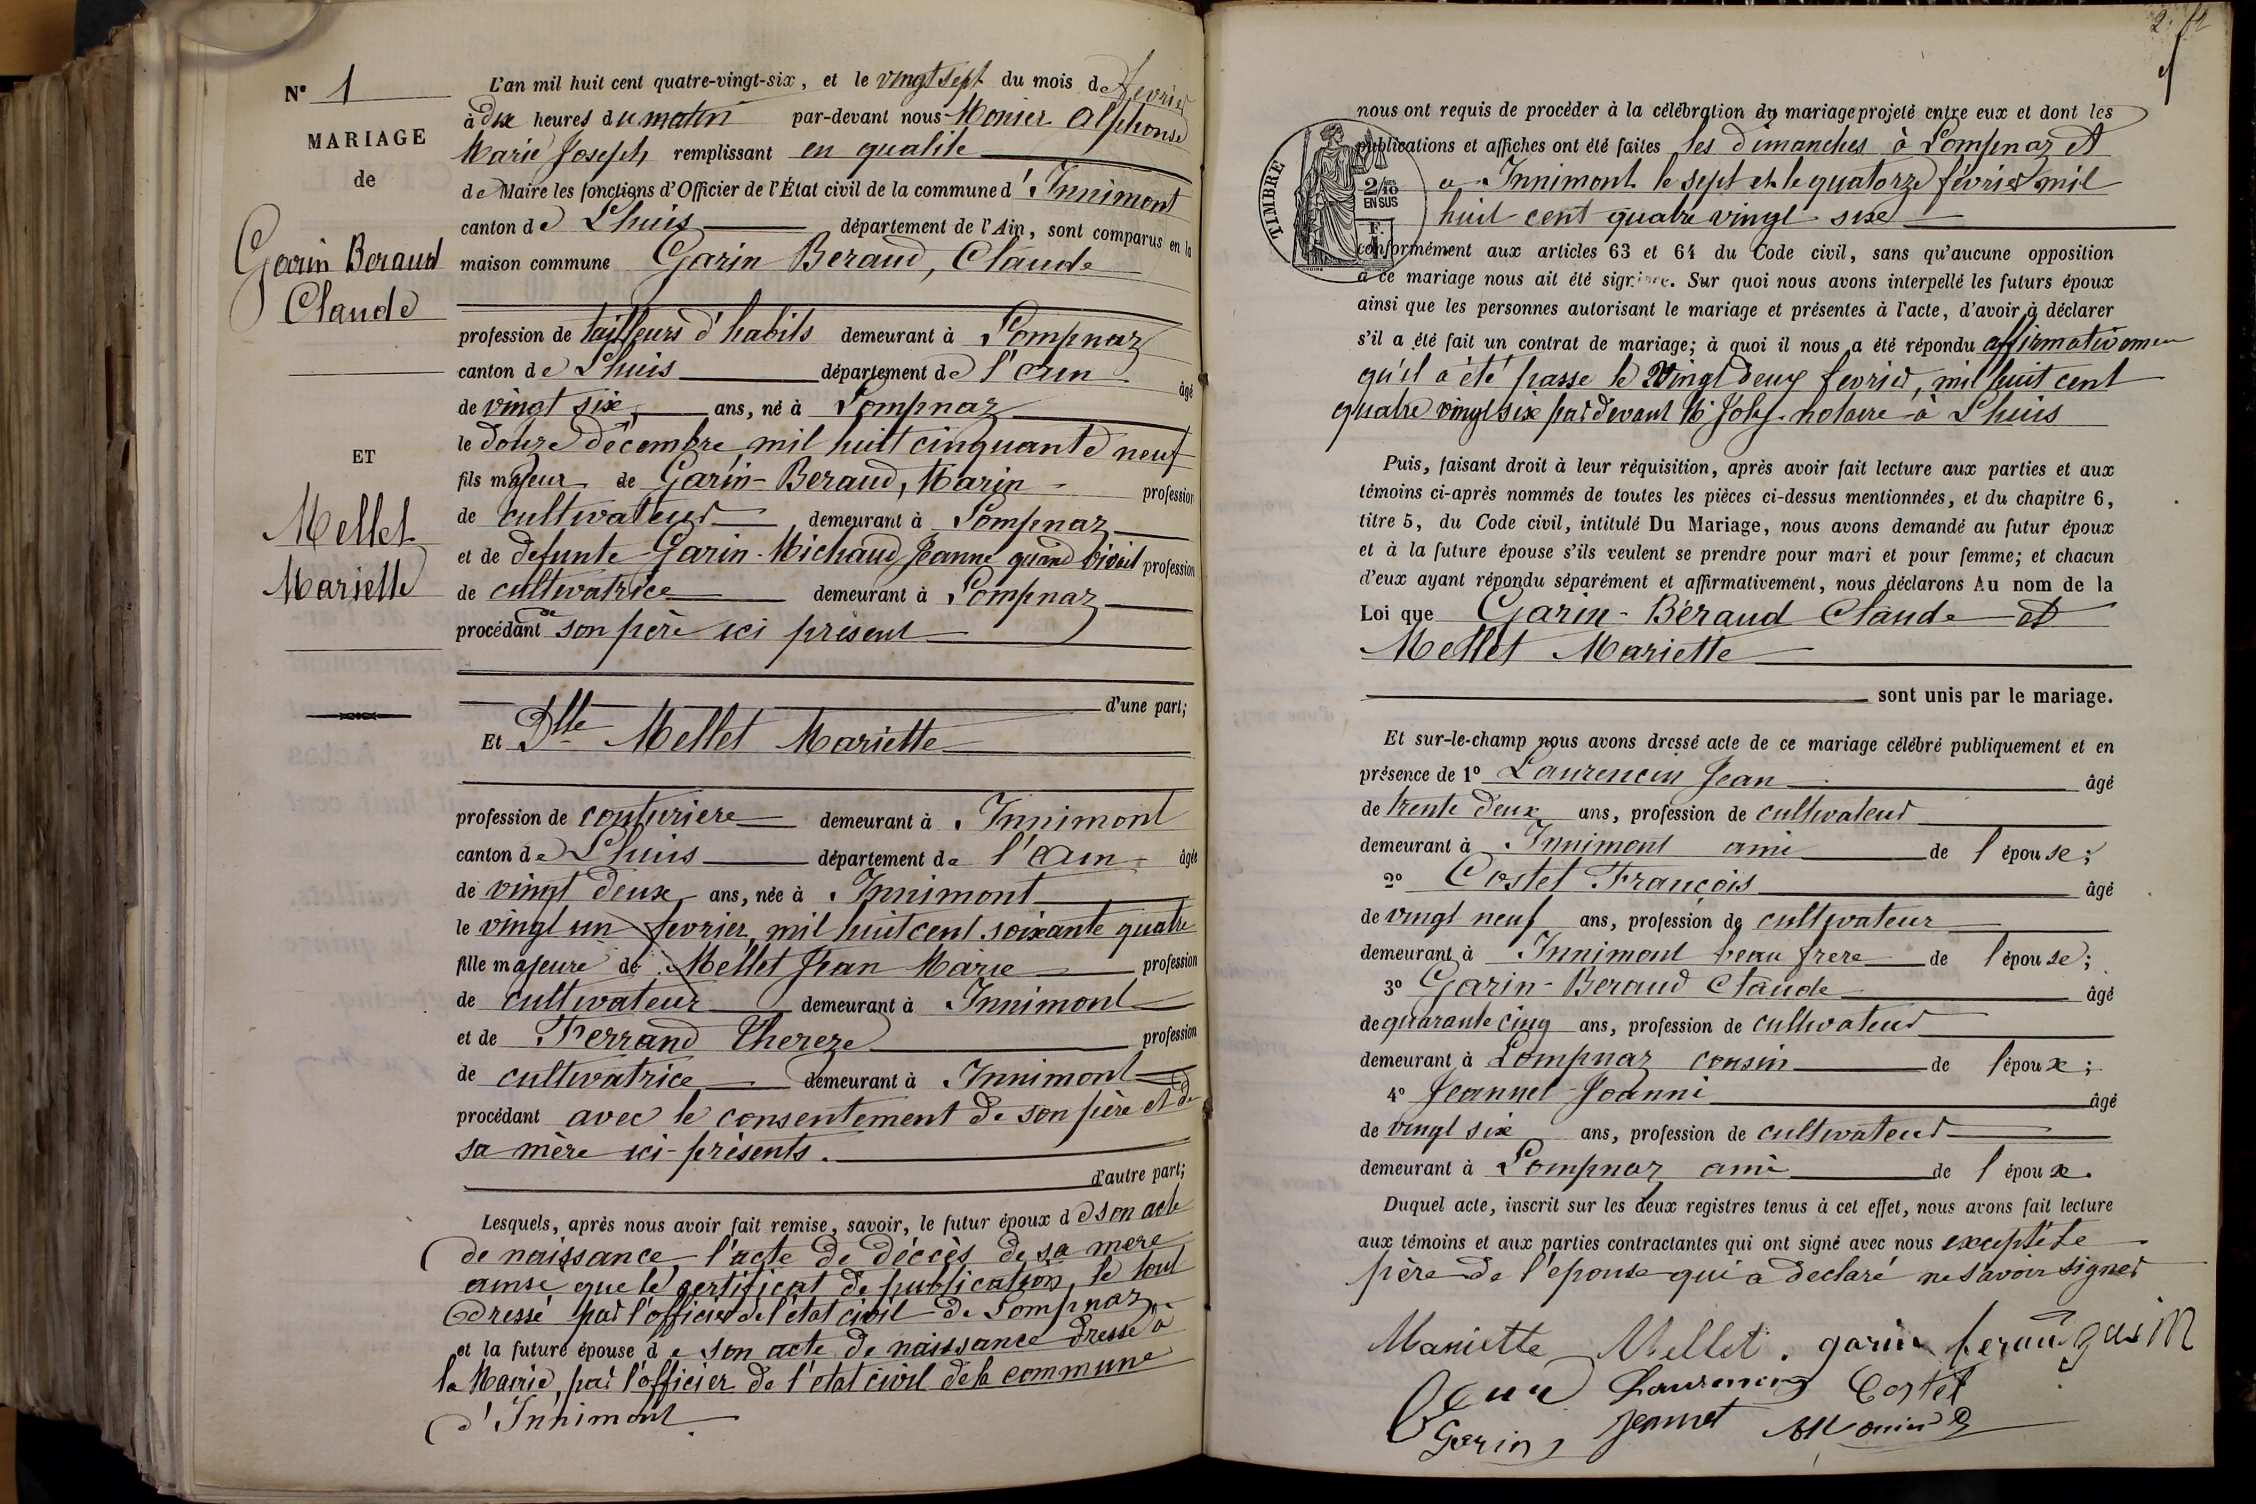 N° 1
MARIAGE
de
Garin Beraud
Claude
ET
Mellet
Mariette
L'an mil huit cent quatre-vingt-six, et le vingt sept du mois de fevrier
à dix heures du matin par-devant nous Monier Alphonse
Marie Joseph remplissant en qualité
de Maire les fonctions d'Officier de l'État civil de la commune d'Innimont
canton de Lhuis département de l'Ain, sont comparus en la
maison commune Garin Beraud, Claude
profession de tailleurs d'habits demeurant à Lompnaz
canton de Lhuis département de l'ain âgé
de vingt six ans, né à Lompnaz
le douze décembre mil huit cinquante neuf
fils majeur de Garin-Beraud, Marin profession
de cultivateur demeurant à Lompnaz
et de defunte Garin-Michaud Jeanne quand vivait profession
de cultivatrice demeurant à Lompnaz
procédant de son père ici présent
d'une part;
Et Dlle Mellet Mariette
profession de couturiere demeurant à Innimont
canton de Lhuis département de l'Ain âgée
de vingt deux ans, née à Innimont
le vingt un fevrier mil huit cent soixante quatre
fille majeure de Mellet Jean Marie profession
de cultivateur demeurant à Innimont
et de Ferrand Thereze profession
de cultivatrice demeurant à Innimont
procédant avec le consentement de son père et de
sa mère ici-présents.
d'autre part;
Lesquels, après nous avoir fait remise, savoir, le futur époux de son acte
de naissance, l'acte de déccès de sa mere
ainsi que le certificat de publication, le tout
dressé par l'officier de l'état civil de Lompnaz
et la future épouse de son acte de naissance dressé à
la Mairie, par l'officier de l'état civil de la commune
d'Innimont.
2.
nous ont requis de procéder à la célébration du mariage projeté entre eux et dont les
publications et affiches ont été faites les dimanches à Lompnaz et
a Innimont le sept et le quatorze février mil
huit cent quatre vingt six
TIMBRE
2/10
EN SUS
conformément aux articles 63 et 64 du Code civil, sans qu'aucune opposition
à ce mariage nous ait été signifiée. Sur quoi nous avons interpellé les futurs époux
ainsi que les personnes autorisant le mariage et présentes à l'acte, d'avoir à déclarer
s'il a été fait un contrat de mariage; à quoi il nous a été répondu affirmativemen
qu'il a été passé le vingt deux fevrier, mil huit cent
quatre vingt six par devant Me Joly notaire à Lhuis
Puis, faisant droit à leur réquisition, après avoir fait lecture aux parties et aux
témoins ci-après nommés de toutes les pièces ci-dessus mentionnées, et du chapitre 6,
titre 5, du Code civil, intitulé Du Mariage, nous avons demandé au futur époux
et à la future épouse s'ils veulent se prendre pour mari et pour femme; et chacun
d'eux ayant répondu séparément et affirmativement, nous déclarons Au nom de la
Loi que Garin-Béraud Claude et
Mellet Mariette
sont unis par le mariage.
Et sur-le-champ nous avons dressé acte de ce mariage célébré publiquement et en
présence de 1° Laurencin Jean âgé
de trente deux ans, profession de cultivateur
demeurant à Innimont ami de l'épouse;
2° Costet François âgé
de vingt neuf ans, profession de cultivateur
demeurant à Innimont beau frere de l'épouse;
3° Garin-Beraud Claude âgé
de quarante cinq ans, profession de cultivateur
demeurant à Lompnaz cousin de l'époux;
4° Jeannet Joanni âgé
de vingt six ans, profession de cultivateur
demeurant à Lompnaz ami de l'époux.
Duquel acte, inscrit sur les deux registres tenus à cet effet, nous avons fait lecture
aux témoins et aux parties contractantes qui ont signé avec nous excepté le
père de l'épouse qui a declaré ne savoir signer
Mariette Mellet. garin beraud garin
Laurencin Costet
Garin Jeannet AMonier